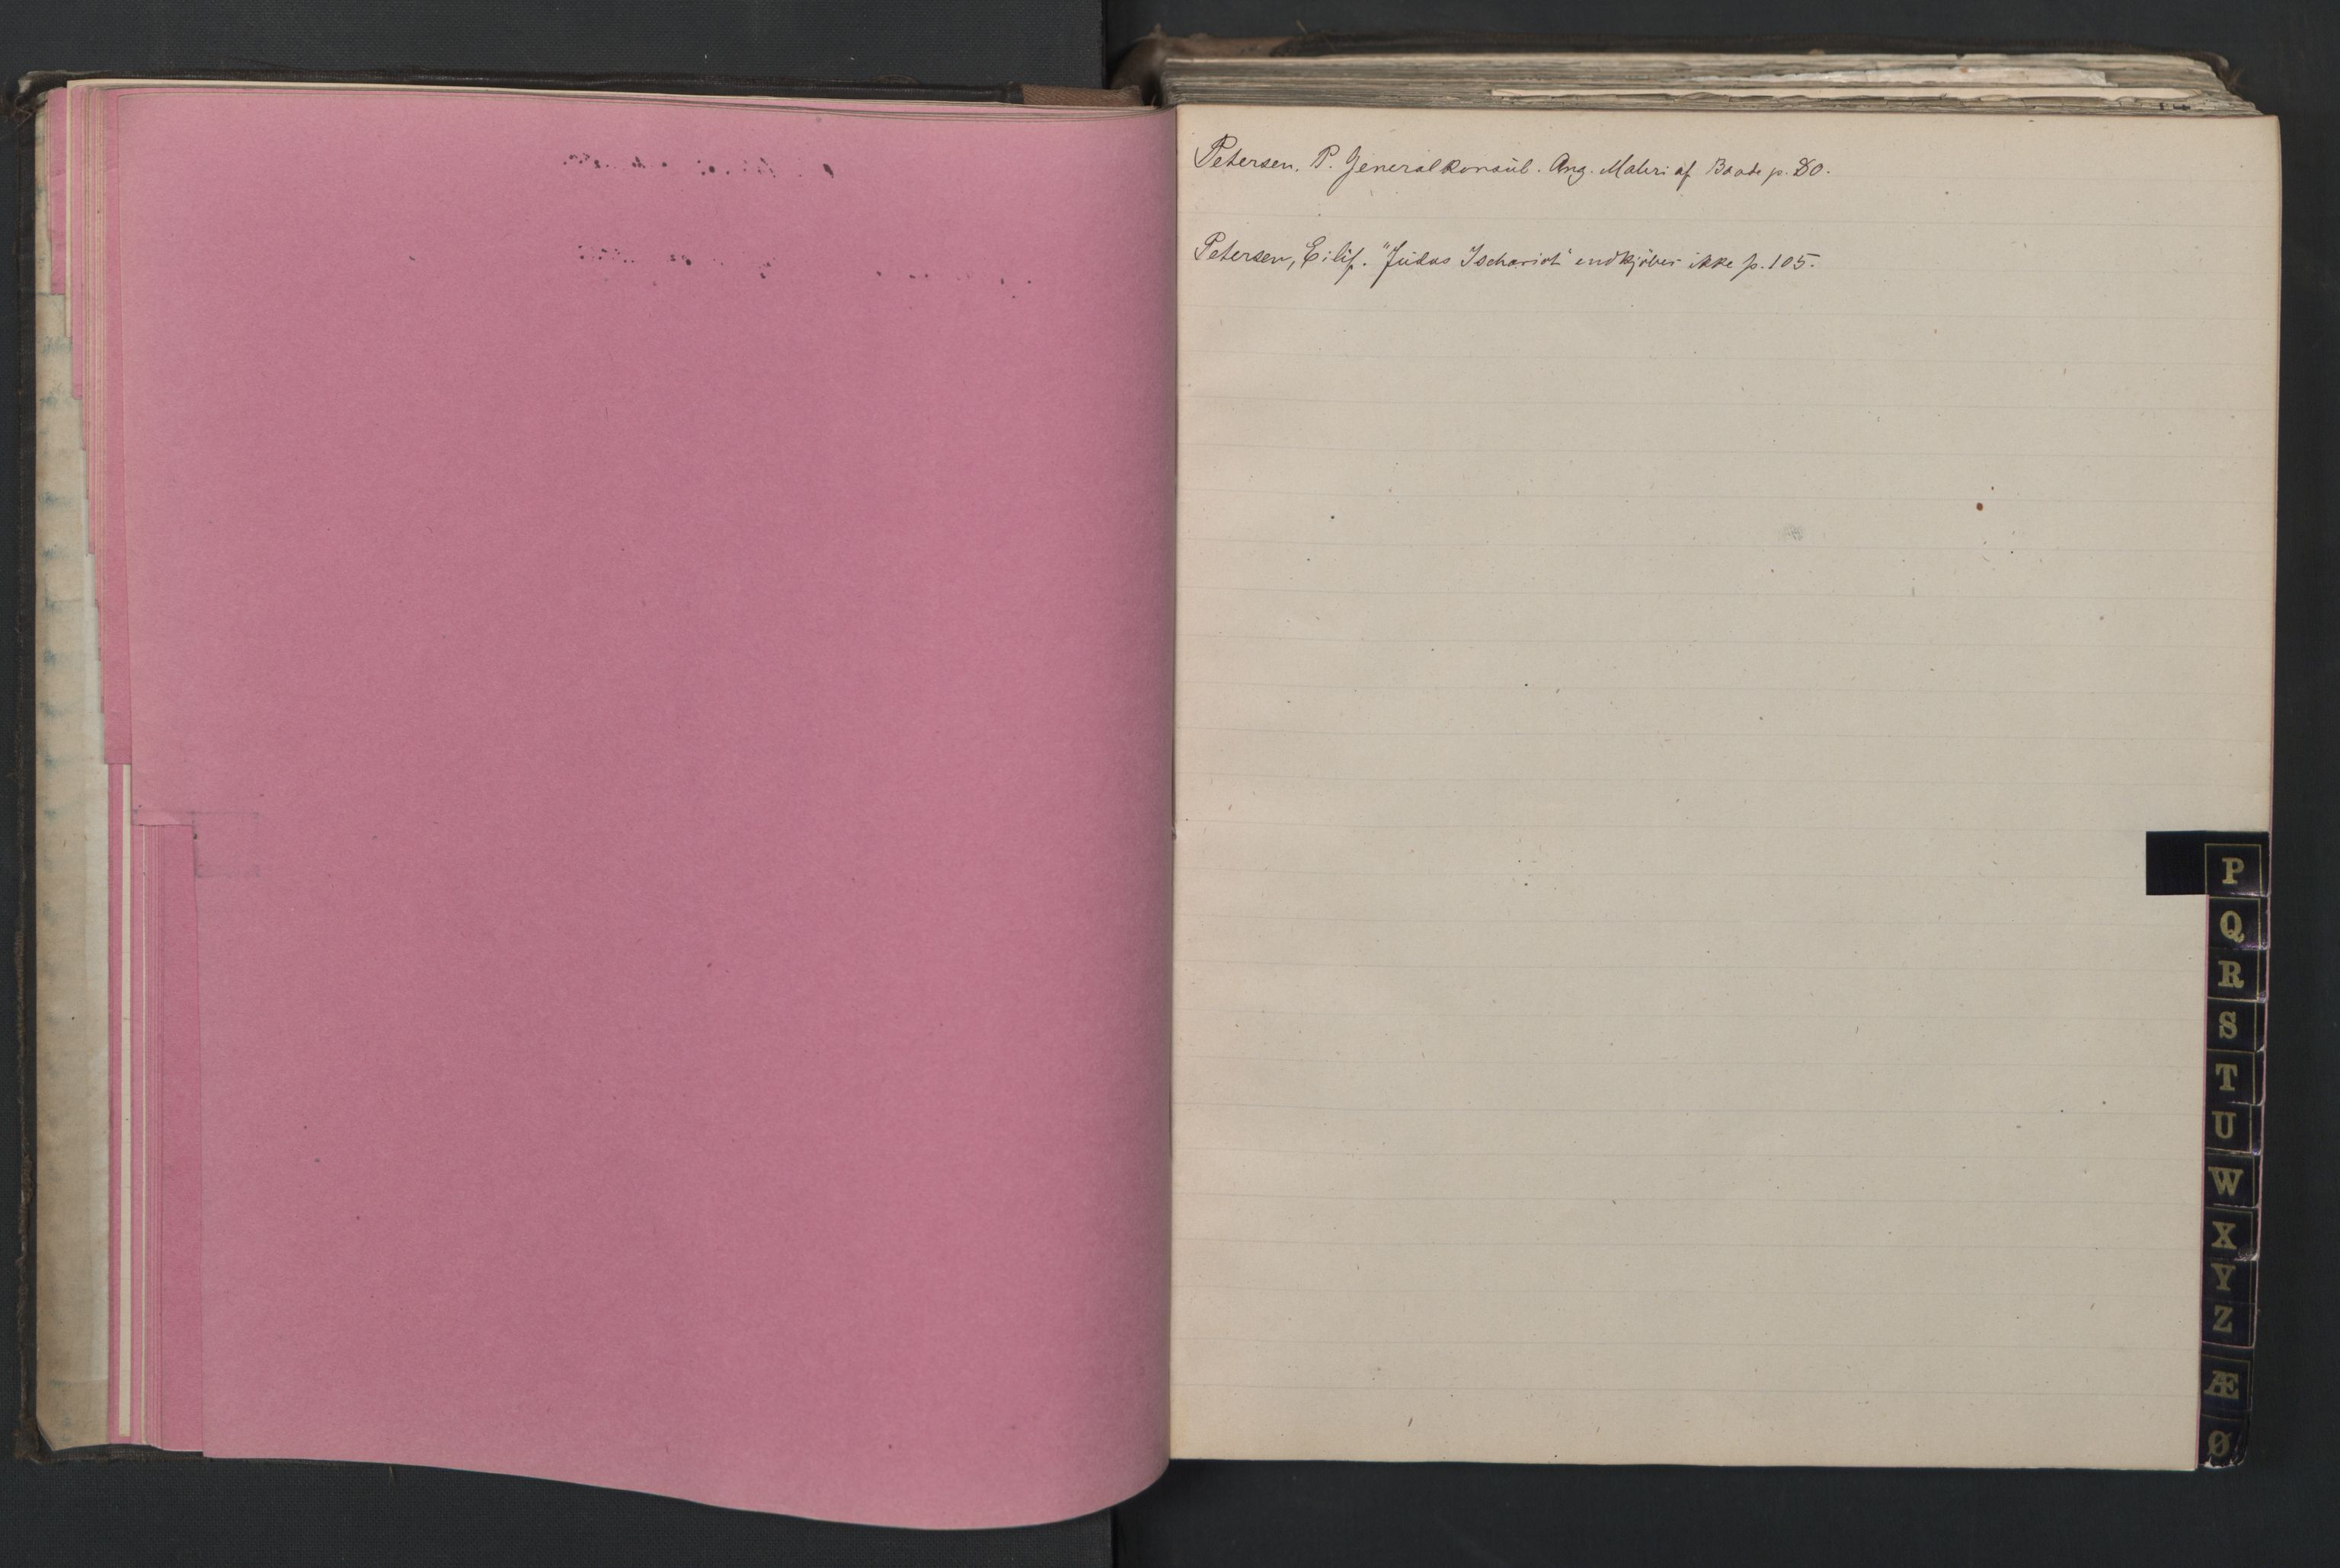 Petersen. P. Generalkonsul. Ang. Maleri af Baade p. 80.
Petersen, Eilif. "Judas Ischariot" indkjöbes ikke p. 105.
P
Q
R
S
T
U
W
X
Y
Z
Æ
Ø